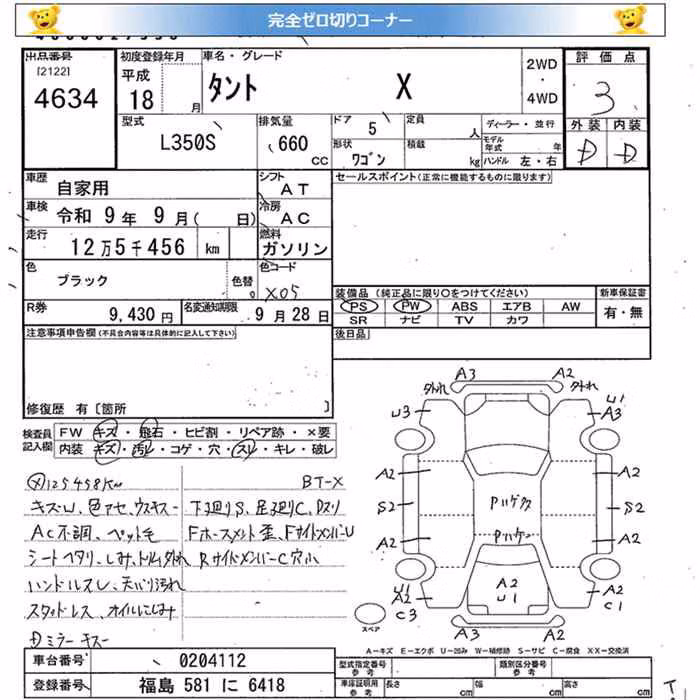 完全ゼロ切りコーナー
出品番号
[2122]
4634
初度登録年月
平成
18 月
車名・グレード
タント X
2WD
・
4WD
評価点
3
外装 内装
D D
型式
L350S
排気量
660
CC
ドア 5
形状 ワゴン
定員 人
積載 kg
ディーラー・並行
モデル年式 年
ハンドル 左・右
車歴
自家用
シフト
AT
セールスポイント(正常に機能するものに限ります)
車検
令和 9年 9月( 日)
冷房
AC
走行
12万5千456 km
燃料
ガソリン
色
ブラック
色替
色コード
X05
装備品 (純正品に限り○をつけてください)
PS PW ABS エアB AW
SR ナビ TV カワ
新車保証書
有・無
R券
9,430円
名変通知期限
9月28日
後日品
注意事項申告欄(不具合内容等は具体的に記入して下さい)
修復歴 有〔箇所 〕
検査員記入欄
FW キズ・飛石・ヒビ割・リペア跡・×要
内装 キズ・汚レ・コゲ・穴・スレ・キレ・破レ
125458Km BT-X
キズU、色アセ、ウスキズ
下廻りS、足廻りC、Dスリ
AC不調、ペット毛
Fホースメント歪、FサイドメンバーU
シートヘタリ、しみ、トリム外れ
RサイドメンバーC穴小
ハンドルスレ、天バリ汚れ
スタッドレス、オイルにじみ
Dミラーキズ
A3 A2
外れ 外れ
U3 U1
A3
A2 A2
S2 S2
Pハゲクス
A2 A2
Pハゲ
U1 A2
A2 U1 A2
C3 C1
A3 A2
スペア
A-キズ E-エクボ U-凹み W-補修跡 S-サビ C-腐食 XX-交換済
車台番号
0204112
登録番号
福島 581 に 6418
型式指定番号
参考
類別区分番号
参考
車庫証明用
参考
長さ cm 幅 cm 高さ cm